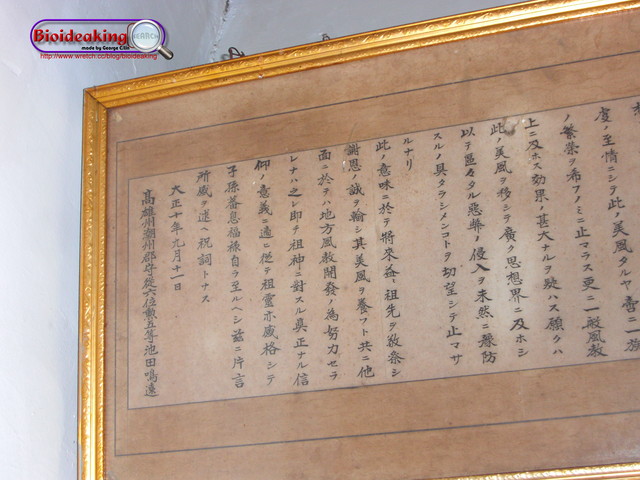 Bioideaking
SEARCH
made by George Chin
http://www.wretch.cc/blog/bioideaking
虔ノ至情ニシテ此ノ美風タルヤ啻ニ一族
ノ繁榮ヲ希フノミニ止マラス更ニ一般風敎
上ニ及ホス効果ノ甚大ナルヲ疑ハス願クハ
此ノ美風ヲ移シテ廣ク思想界ニ及ホシ
以テ區々タル惡弊ノ侵入ヲ未然ニ豫防
スルノ具タラシメンコトヲ切望シテ止マサ
ルナリ
此ノ意味ニ於テ將來益々祖先ヲ敬崇シ
謝恩ノ誠ヲ輸シ其美風ヲ養フト共ニ他
面ニ於テハ地方風敎開發ノ為努力セラ
レナハ之レ即チ祖神ニ對スル眞正ナル信
仰ノ意義ニ適ニ從テ祖靈亦感格シテ
子孫蕃息福祿自ラ至ルヘシ茲ニ片言
所感ヲ述ヘ祝詞トナス
大正十年九月十一日
高雄州潮州郡守從六位勳五等池田鳴遠